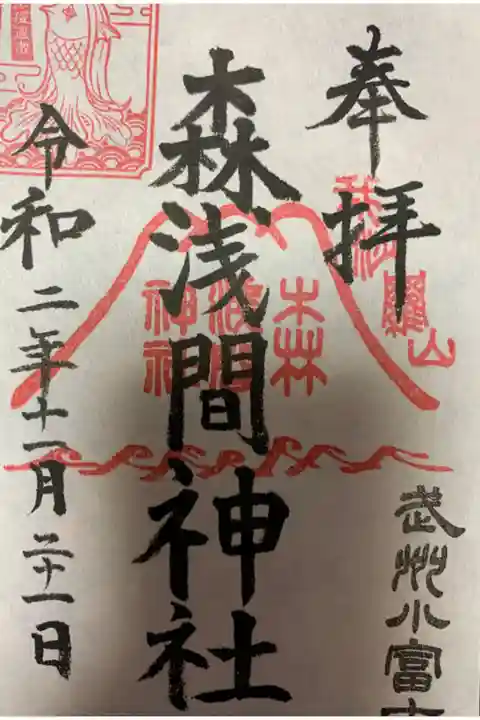 奉拝
武州小富士
森浅間神社
森浅間神社
令和二年十一月二十一日